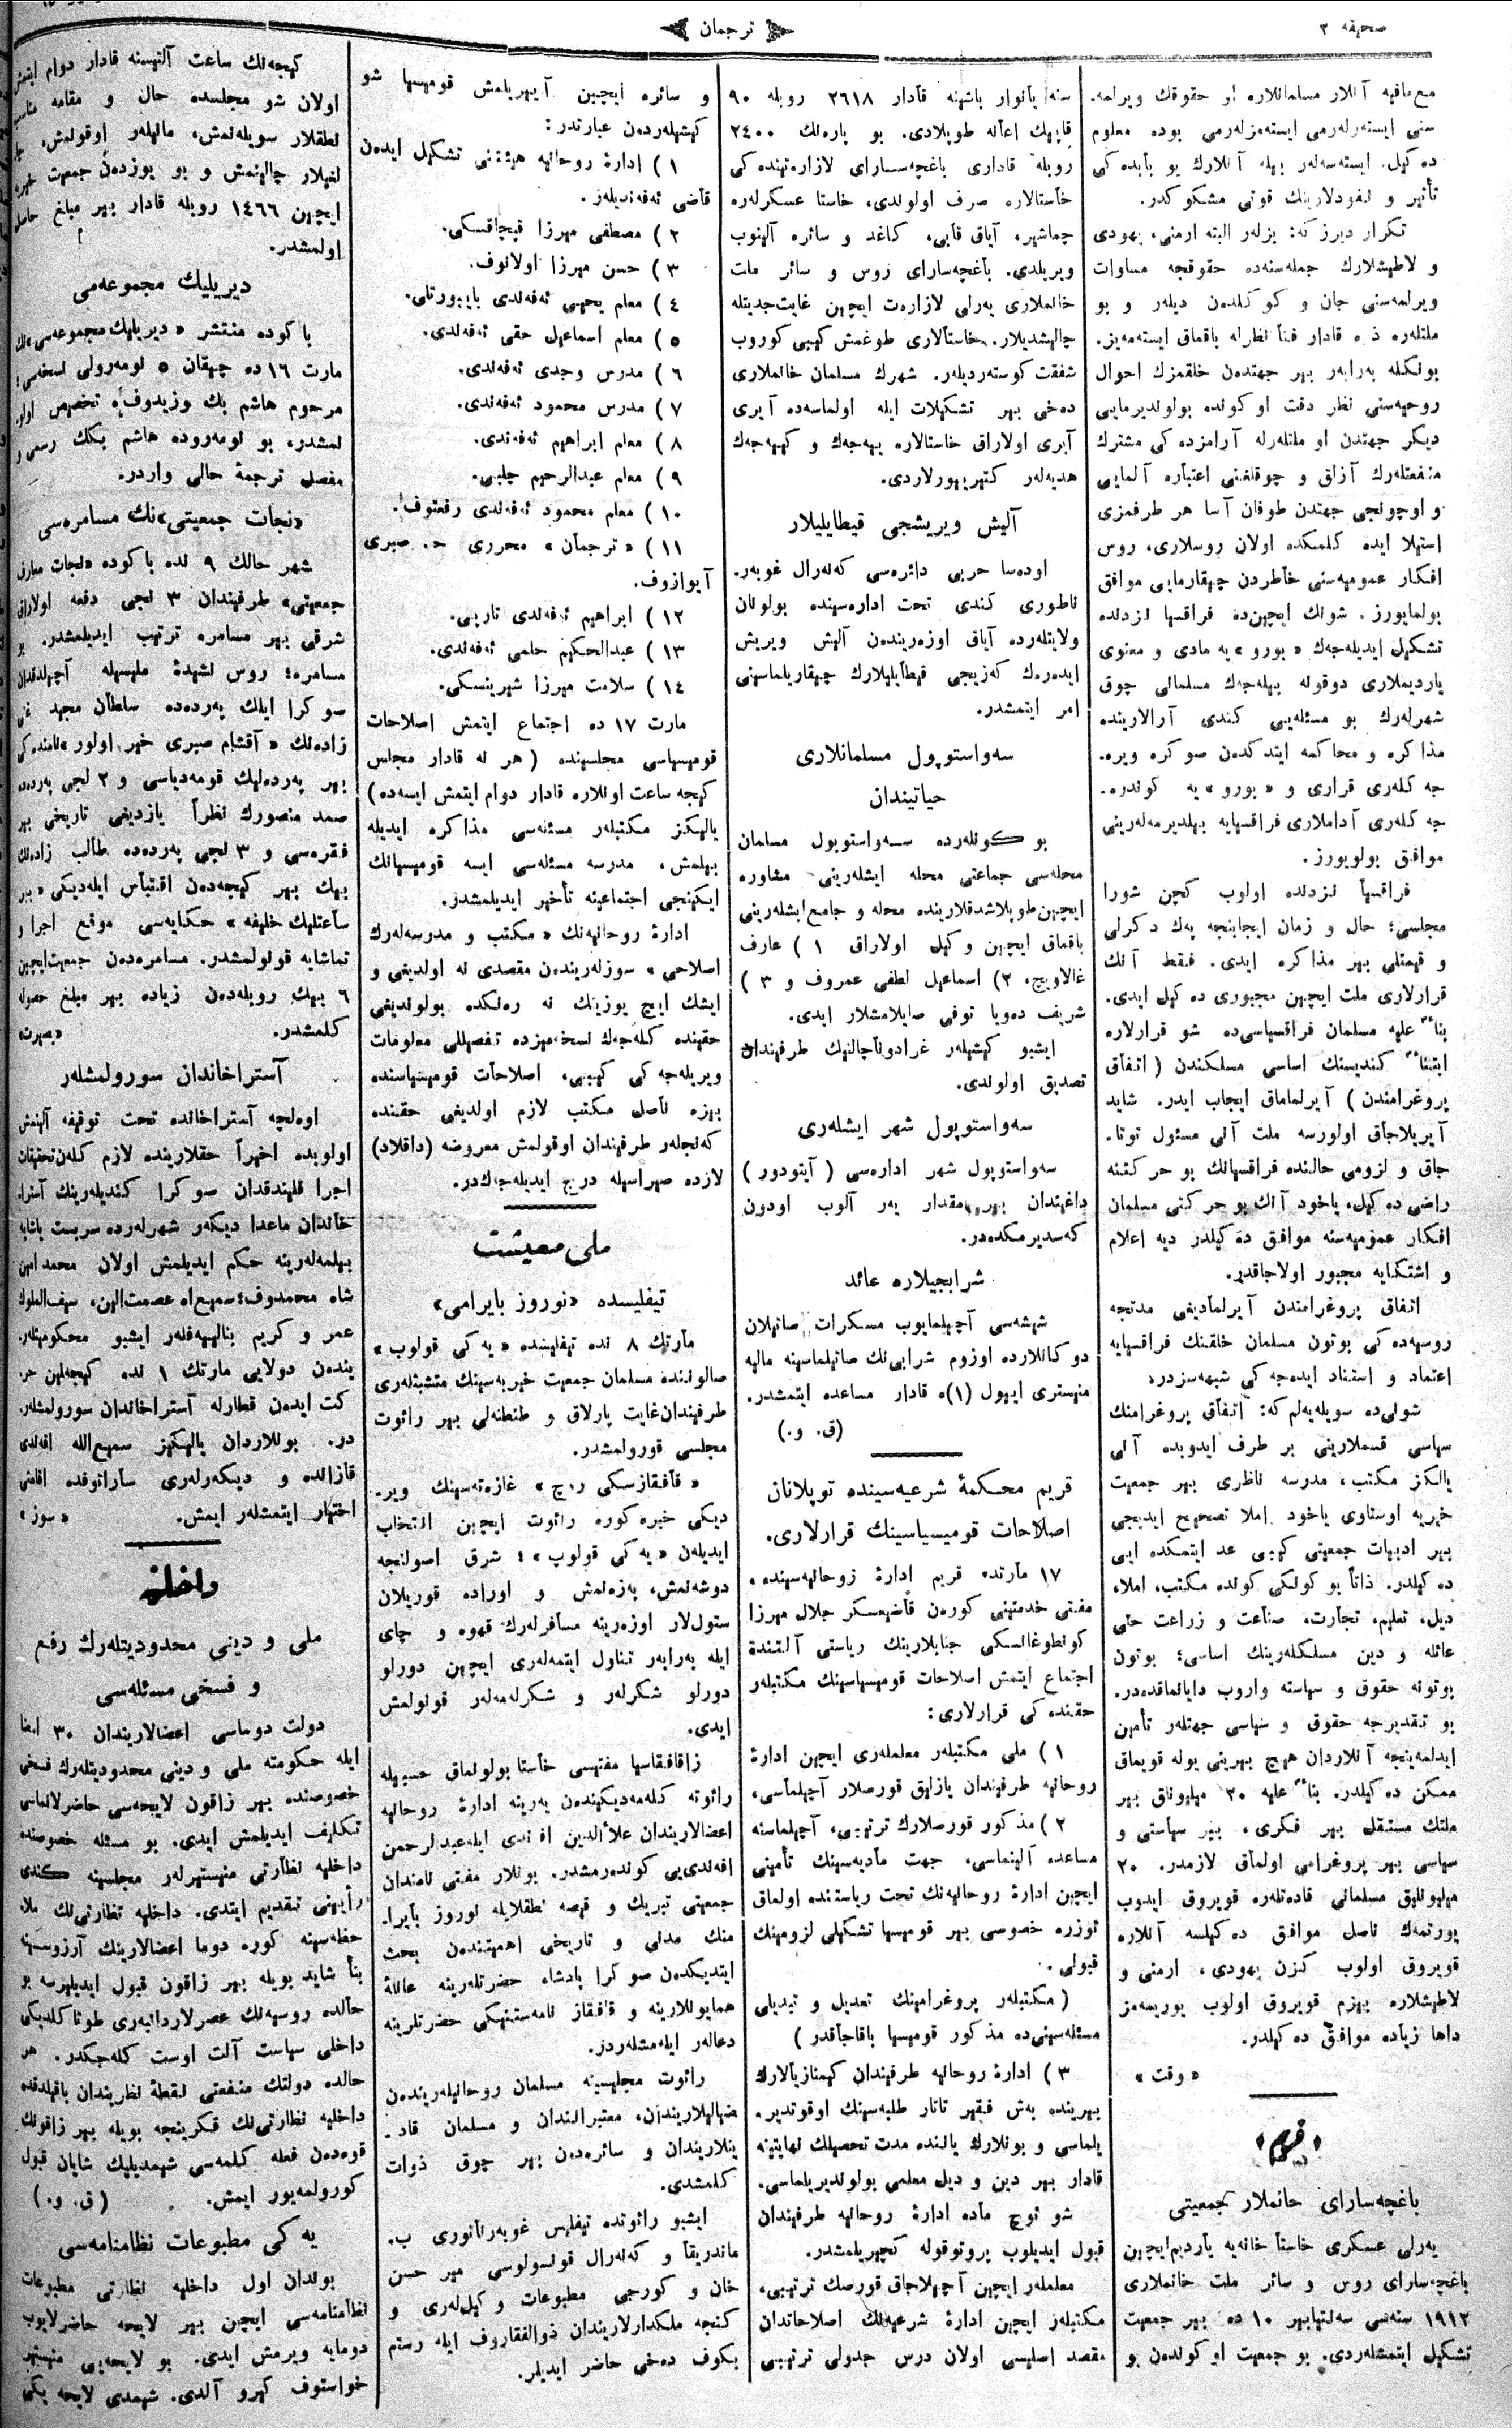 صحیفه ٢
ترجمان
مع‌مافیه آنلار مسلمانلاره او حقوقك ویرلمه‌.
سنی ایسته‌رلرمی ایسته‌مزلرمی بوده معلوم
ده‌كیل. ایسته‌سه‌لر بیله آنلارك بو بابده كی
تأثیر و نفوذلارینك قوتی مشكوكدر.
تكرار دیرز كه: بزلر البته ارمنی، یهودی
و لاطیشلارك جمله‌سنه‌ده حقوقجه مساوات
ویرلمه‌سنی جان و كوكلدن دیلر و بو
ملتلره ذره قادار فنا نظرله باقماق ایسته‌مه‌یز.
بونكله برابر بیر جهتدن خلقمزك احوال
روحیه‌سنی نظر دقت اوكونده بولوندیرمایی
دیگر جهتدن او ملتلرله آرامزده كی مشترك
منفعتلرك آزلق و چوقلغنی اعتباره آلمایی
و اوچونجی جهتدن طوفان آسا هر طرفمزی
استیلا ایده كلمكده اولان روسلاری، روس
افكار عمومیه‌سنی خاطردن چیقارمایی موافق
بولمایورز. شونك ایچین‌ده فراقسیا نزدنده
تشكیل ایدیله‌جك «بورو» یه مادی و معنوی
یاردیملاری دوقونه بیله‌جك مسلمانی چوق
شهرلرك بو مسئله‌یی كندی آرالارینده
مذاكره و محاكمه ایتدكدن صوكره ویره‌.
جه‌كلری قراری و «بورو» یه كوندره‌.
جه‌كلری آداملاری فراقسیایه بیلدیرمه‌لرینی
موافق بولویورز.
فراقسیا نزدنده اولوب كچن شورا
مجلسی؛ حال و زمان ایجابنجه پك دكرلی
و قیمتلی بیر مذاكره ایدی. فقط آنك
قرارلاری ملت ایچین مجبوری ده‌كیل ایدی.
بناءً علیه مسلمان فراقسیاسی‌ده شو قرارلاره
ابتناءً كندیسنك اساسی مسلكندن (اتفاق
پروغرامندن) آیرلماماق ایجاب ایدر. شاید
آیریلاجاق اولورسه ملت آنی مسئول توتا‌.
جاق و لزومی حالنده فراقسیانك بو حركتنه
راضی ده‌كیل، یاخود آنك بو حركتی مسلمان
افكار عمومیه‌سنه موافق ده‌كیلدر دیه اعلام
و اشتكایه مجبور اولاجاقدر.
اتفاق پروغرامندن آیرلمادیغی مدتجه
روسیه‌ده كی بوتون مسلمان خلقنك فراقسیایه
اعتماد و استناد ایده‌جه‌كی شبهه‌سزدر.
شونی‌ده سویله‌یه‌لم كه: اتفاق پروغرامنك
سیاسی قسملارینی بر طرف ایدوبده آنی
یالكز مكتب، مدرسه ناظری بیر جمعیت
خیریه اوستاوی یاخود املا تصحیح ایدیجی
بیر ادبیات جمعیتی كیبی عد ایتمكده ایی
ده‌كیلدر. ذاتاً بو كونكی كونده مكتب، املا،
دیل، تعلیم، تجارت، صناعت و زراعت حتی
عائله و دین مسلكلرینك اساسی؛ بوتون
بوتونه حقوق و سیاسته واروب دایانماقده‌در.
بو تقدیرجه حقوق و سیاسی جهتلر تأمین
ایدلمه‌ینجه آنلاردان هیچ بیرینی یوله قویماق
ممكن ده‌كیلدر. بناءً علیه ٢٠ میلیونلق بیر
ملتك مستقل بیر فكری، بیر سیاستی و
سیاسی بیر پروغرامی اولماق لازمدر. ٢٠
میلیونلیق مسلمانی قاده‌تلره قویروق ایدوب
یورتمك ناصل موافق ده‌كیلسه آنلاره
قویروق اولوب كزن یهودی، ارمنی و
لاطیشلاره بیزم قویروق اولوب یوریمه‌مز
داها زیاده موافق ده‌كیلدر.
«وقت»
قریم
باغچه‌سارای خانملار جمعیتی
یرلی عسكری خاستا خانه‌یه یاردیم ایچین
باغچه‌سارای روس و سائر ملت خانملاری
١٩١٢ سنه‌سی سه‌نتیابیر ١٠ ده بیر جمعیت
تشكیل ایتمشله‌ردی. بو جمعیت او كوندن بو
سنه یانوار باشینه قادار ٢٦١٨ روبله ٩٠
قاپیك اعانه طوپلادی. بو پاره‌نك ٢٤٠٠
روبله قاداری باغچه‌سارای لازاره‌تینده كی
خاستالاره صرف اولوندی، خاستا عسكرلره
چماشیر، آیاق قابی، كاغد و سائره آلینوب
ویریلدی. باغچه‌سارای روس و سائر ملت
خانملاری یرلی لازاره‌ت ایچین غایت جدیتله
چالیشدیلار. خاستالاری طوغمش كیبی كوروب
شفقت كوسته‌ردیلر. شهرك مسلمان خانملاری
ده‌خی بیر تشكیلات ایله اولماسه‌ده آیری
آیری اولاراق خاستالاره ییه‌جك و كییه‌جك
هدیه‌لر كتیریورلاردی.
آلیش ویریشجی قیطایلیلار
اوده‌سا حربی دائره‌سی كه‌نه‌رال غوبه‌ر‌.
ناطوری كندی تحت اداره‌سینده بولونان
ولایتلرده آیاق اوزه‌رینده آلیش ویریش
ایده‌رك كه‌زیجی قیطایلیلارك چیقاریلماسینی
امر ایتمشدر.
سه‌واستوپول مسلمانلاری
حیاتیندان
بو كونلرده سه‌واستوپول مسلمان
محله‌سی جماعتی محله ایشلرینی مشاوره
ایچین طوپلاشدقلارینده محله و جامع ایشلرینی
باقماق ایچین وكیل اولاراق ١) عارف
غالاویچ، ٢) اسماعیل لطفی عمروف و ٣)
شریف ده‌ویا توفی صایلامشلار ایدی.
ایشبو كیشیلر غرادوناچالنیك طرفیندان
تصدیق اولوندی.
سه‌واستوپول شهر ایشله‌ری
سه‌واستوپول شهر اداره‌سی (آیتودور)
داغیندان بیر مقدار یه‌ر آلوب اودون
كه‌سدیرمكده‌در.
شرابجیلاره عائد
شهشه‌سی آچیلمایوب مسكرات صاتیلان
دوكانلارده اوزوم شرابی‌نك صاتیلماسینه مالیه
منیستری ایپول (١)ه قادار مساعده ایتمشدر.
(ق. و.)
قریم محكمۀ شرعیه‌سینده توپلانان
اصلاحات قومیسیاسینك قرارلاری.
١٧ مارتده قریم ادارۀ روحانیه‌سینده،
مفتی خدمتینی كورن قاضیعسكر جلال میرزا
كونطوغانسكی جنابلارینك ریاستی آلتنده
اجتماع ایتمش اصلاحات قومیسیاسینك مكتبلر
حقنده كی قرارلاری:
١) ملی مكتبلر معلملری ایچین ادارۀ
روحانیه طرفیندان یازلیق قورصلار آچیلماسی،
٢) مذكور قورصلارك ترتیبی، آچیلماسنه
مساعده آلینماسی، جهت مادیه‌سینك تأمینی
ایچین ادارۀ روحانیه‌نك تحت ریاستنده اولماق
ئوزره خصوصی بیر قومیسیا تشكیلی لزومینك
قبولی.
(مكتبلر پروغرامینك تعدیل و تبدیلی
مسئله‌سینی‌ده مذكور قومیسیا باقاجاقدر)
٣) ادارۀ روحانیه طرفیندان كیمنازیالارك
بیرینده بش فقیر تاتار طلبه‌سینك اوقوتدیر‌.
یلماسی و بونلارك یاننده مدت تحصیلك نهایتینه
قادار بیر دین و دیل معلمی بولوندیریلماسی.
شو ئوچ ماده ادارۀ روحانیه طرفیندان
قبول ایدیلوب پروتوقوله كچیریلمشدر.
معلملر ایچین آچیلاجاق قورصك ترتیبی،
مكتبلر ایچین ادارۀ شرعیه‌نك اصلاحاتدان
مقصد اصلیسی اولان درس جدولی ترتیبی
و سائره ایچین آییریلمش قومیسیا شو
كیشیلردن عبارتدر:
١) ادارۀ روحانیه هیئتنی تشكیل ایدن
قاضی ئه‌فه‌ندیلر.
٢) مصطفی میرزا قیچاقسكی.
٣) حسن میرزا اولانوف.
٤) معلم یحیی ئه‌فه‌ندی بایبورتلی.
٥) معلم اسماعیل حقی ئه‌فه‌ندی.
٦) مدرس وجدی ئه‌فه‌ندی.
٧) مدرس محمود ئه‌فه‌ندی.
٨) معلم ابراهیم ئه‌فه‌ندی.
٩) معلم عبدالرحیم چلبی.
١٠) معلم محمود ئه‌فه‌ندی رفعتوف.
١١) «ترجمان» محرری ح. صبری
آیوازوف.
١٢) ابراهیم ئه‌فه‌ندی تارپی.
١٣) عبدالحكیم حلمی ئه‌فه‌ندی.
١٤) سلامت میرزا شیرینسكی.
مارت ١٧ ده اجتماع ایتمش اصلاحات
قومیسیاسی مجلسینده (هر نه قادار مجلس
كیجه ساعت اونلاره قادار دوام ایتمش ایسه‌ده)
یالیكز مكتبلر مسئله‌سی مذاكره ایدیله
بیلمش، مدرسه مسئله‌سی ایسه قومیسیانك
ایكینجی اجتماعینه تأخیر ایدیلمشدر.
ادارۀ روحانیه‌نك «مكتب و مدرسه‌لرك
اصلاحی» سوزلریندن مقصدی نه اولدیغی و
ایشك ایچ یوزینك نه ره‌نكده بولوندیغی
حقینده كله‌جك نسخه‌میزده تفصیللی معلومات
ویریله‌جه‌كی كیبی، اصلاحات قومیسیاسنده
بیزه ناصل مكتب لازم اولدیغی حقنده
كه‌نجلر طرفیندان اوقولمش معروضه (داقلاد)
لارده صیراسیله درج ایدیله‌جك‌در.
ملی معیشت
تیفلیسده «نوروز بایرامی»
مارتك ٨ نده تیفلیسده «یه‌كی قولوب»
صالوننده مسلمان جمعیت خیریه‌سینك متشبثله‌ری
طرفیندان غایت پارلاق و طنطنه‌لی بیر رائوت
مجلسی قورولمشدر.
«قافقازسكی ره‌چ» غازه‌ته‌سینك ویر‌.
دیكی خبره كوره رائوت ایچین انتخاب
ایدیلن «یه‌كی قولوب»؛ شرق اصولنجه
دوشه‌نمش، بزه‌نمش و اوراده قوریلان
ستول‌لار اوزه‌رینه مسافرلرك قهوه و چای
ایله برابر تناول ایتمه‌لری ایچین دورلو
دورلو شكرلر و شكرله‌مه‌لر قونولمش
ایدی.
زاقافقاسیا مفتیسی خاستا بولونماق حسبیله
رائوته كله‌مه‌دیكیندن یرینه ادارۀ روحانیه
اعضالاریندان علاءالدین افندی ایله عبدالرحمن
افه‌ندی‌یی كونده‌رمشدر. بونلار مفتی نامندان
جمعیتی تبریك و قیصه نطقلایله نوروز بایرا‌.
منك مدنی و تاریخی اهمیتندن بحث
ایتدیكدن صوكرا پادشاه حضرتلرینه عائلۀ
همایونلارینه و قافقاز نامه‌ستنیكی حضرتلرینه
دعالر ایله‌مشله‌ردر.
رائوت مجلیسینه مسلمان روحانیله‌ریندن
ضیالیلاریندان، معتبرانندان و مسلمان قاد‌.
ینلاریندان و سائره‌دن بیر چوق ذوات
كلمشدی.
ایشبو رائوتده تیفلیس غوبه‌رناتوری ب.
ماندریقا و كه‌نه‌رال قونسولوسی میر حسن
خان و كورجی مطبوعات وكیل‌لری و
كنجه ملكدارلاریندان ذوالفقاروف ایله رستم
بكوف ده‌خی حاضر ایدیلر.
كیجه‌نك ساعت آلتیسنه قادار دوام ایتمش
اولان شو مجلسده حال و مقامه مناسب
نطقلار سویله‌نمش، مانیلر اوقولمش،
لغیلار چالینمش و بو یوزدن جمعیت خیریه
ایچین ١٤٦٦ روبله قادار بیر مبلغ حاصل
اولمشدر.
دیریلیك مجموعه‌می
باكوده منتشر «دیریلیك مجموعه‌سی»نك
مارت ١٦ ده چیقان ٥ نومرولی نسخه‌سی
مرحوم هاشم بك وزیروفه تخصیص اولو‌.
نمشدر، بو نومروده هاشم بكك رسمی و
مفصل ترجمۀ حالی واردر.
«نجات جمعیتی»نك مسامره‌سی
شهر حالك ٩ نده باكوده «نجات معارف
جمعیتی» طرفیندان ٣ نجی دفعه اولاراق
شرقی بیر مسامره ترتیب ایدیلمشدر. بو
مسامره؛ روس نشیدۀ ملیسیله آچیلدقدان
صوكرا ایلك پرده‌ده سلطان مجید غنی
زاده‌نك «آقشام صبری خیر اولور» نامنده كی
بیر پرده‌لیك قومه‌دیاسی و ٢ نجی پرده‌ده
صمد منصورك نظراً یازدیغی تاریخی بیر
فقره‌سی و ٣ نجی پرده‌ده طالب زاده‌نك
بیك بیر كیجه‌دن اقتباس ایله‌دیكی «بیر
ساعتلیك خلیفه» حكایه‌سی موقع اجرا و
تماشایه قونولمشدر. مسامره‌دن جمعیت ایچین
٦ بیك روبله‌دن زیاده بیر مبلغ حصوله
كلمشدر. «بصیرت»
آستراخاندان سورولمشلر
اولجه آستراخانده تحت توقیفه آلینمش
اولوبده اخیراً حقلارینده لازم كلن تحقیقات
اجرا قلیندقدان صوكرا كندیلرینك آسترا‌.
خاندان ماعدا دیكر شهرلرده سربست یاشایه
بیلمه‌لرینه حكم ایدیلمش اولان محمد امین
شاه محمدوف؛ سمیع‌اه عصمت‌الین، سیف‌الملوك
عمر و كریم بنالییه‌فلر ایشبو محكومیتله‌ر‌.
یندن دولایی مارتك ١ نده كیجه‌لین حر‌.
كت ایدن قطارله آستراخاندان سورولمشلر‌.
در. بونلاردان یالیكیز سمیع‌الله افه‌ندی
قازانده و دیكرلری ساراتوفده اقامتی
اختیار ایتمشلر ایمش. «سوز»
داخلیه
ملی و دینی محدودیتله‌رك رفع
و فسخی مسئله‌سی
دولت دوماسی اعضالاریندان ٣٠ امضا
ایله حكومته ملی و دینی محدودیتلرك فسخی
خصوصنده بیر زاقون لایحه‌سی حاضرلانماسی
تكلیف ایدیلمش ایدی. بو مسئله خصوصنده
داخلیه نظارتی منیستیرلر مجلسینه كندی
رأیینی تقدیم ایتدی. داخلیه نظارتی‌نك ملا‌.
حظه‌سینه كوره دوما اعضالارینك آرزوسینه
بنا شاید بویله بیر زاقون قبول ایدیلیرسه بو
حالده روسیه‌نك عصرلاردانبری طوتا كلدیكی
داخلی سیاست آلت اوست كله‌جكدر. هر
حالده دولتك منفعتی نقطۀ نظریندان باقیلدقده
داخلیه نظارتی‌نك فكرینجه بویله بیر زاقونك
قوه‌دن فعله كلمه‌سی شیمدیلیك شایان قبول
كورولمه‌یور ایمش. (ق. و.)
یه‌كی مطبوعات نظامنامه‌سی
بوندان اول داخلیه نظارتی مطبوعات
نظامنامه‌سی ایچین بیر لایحه حاضرلایوب
دومایه ویرمش ایدی. بو لایحه‌یی منیستیر
خواستوف كیرو آلدی. شیمدی لایحه یكی